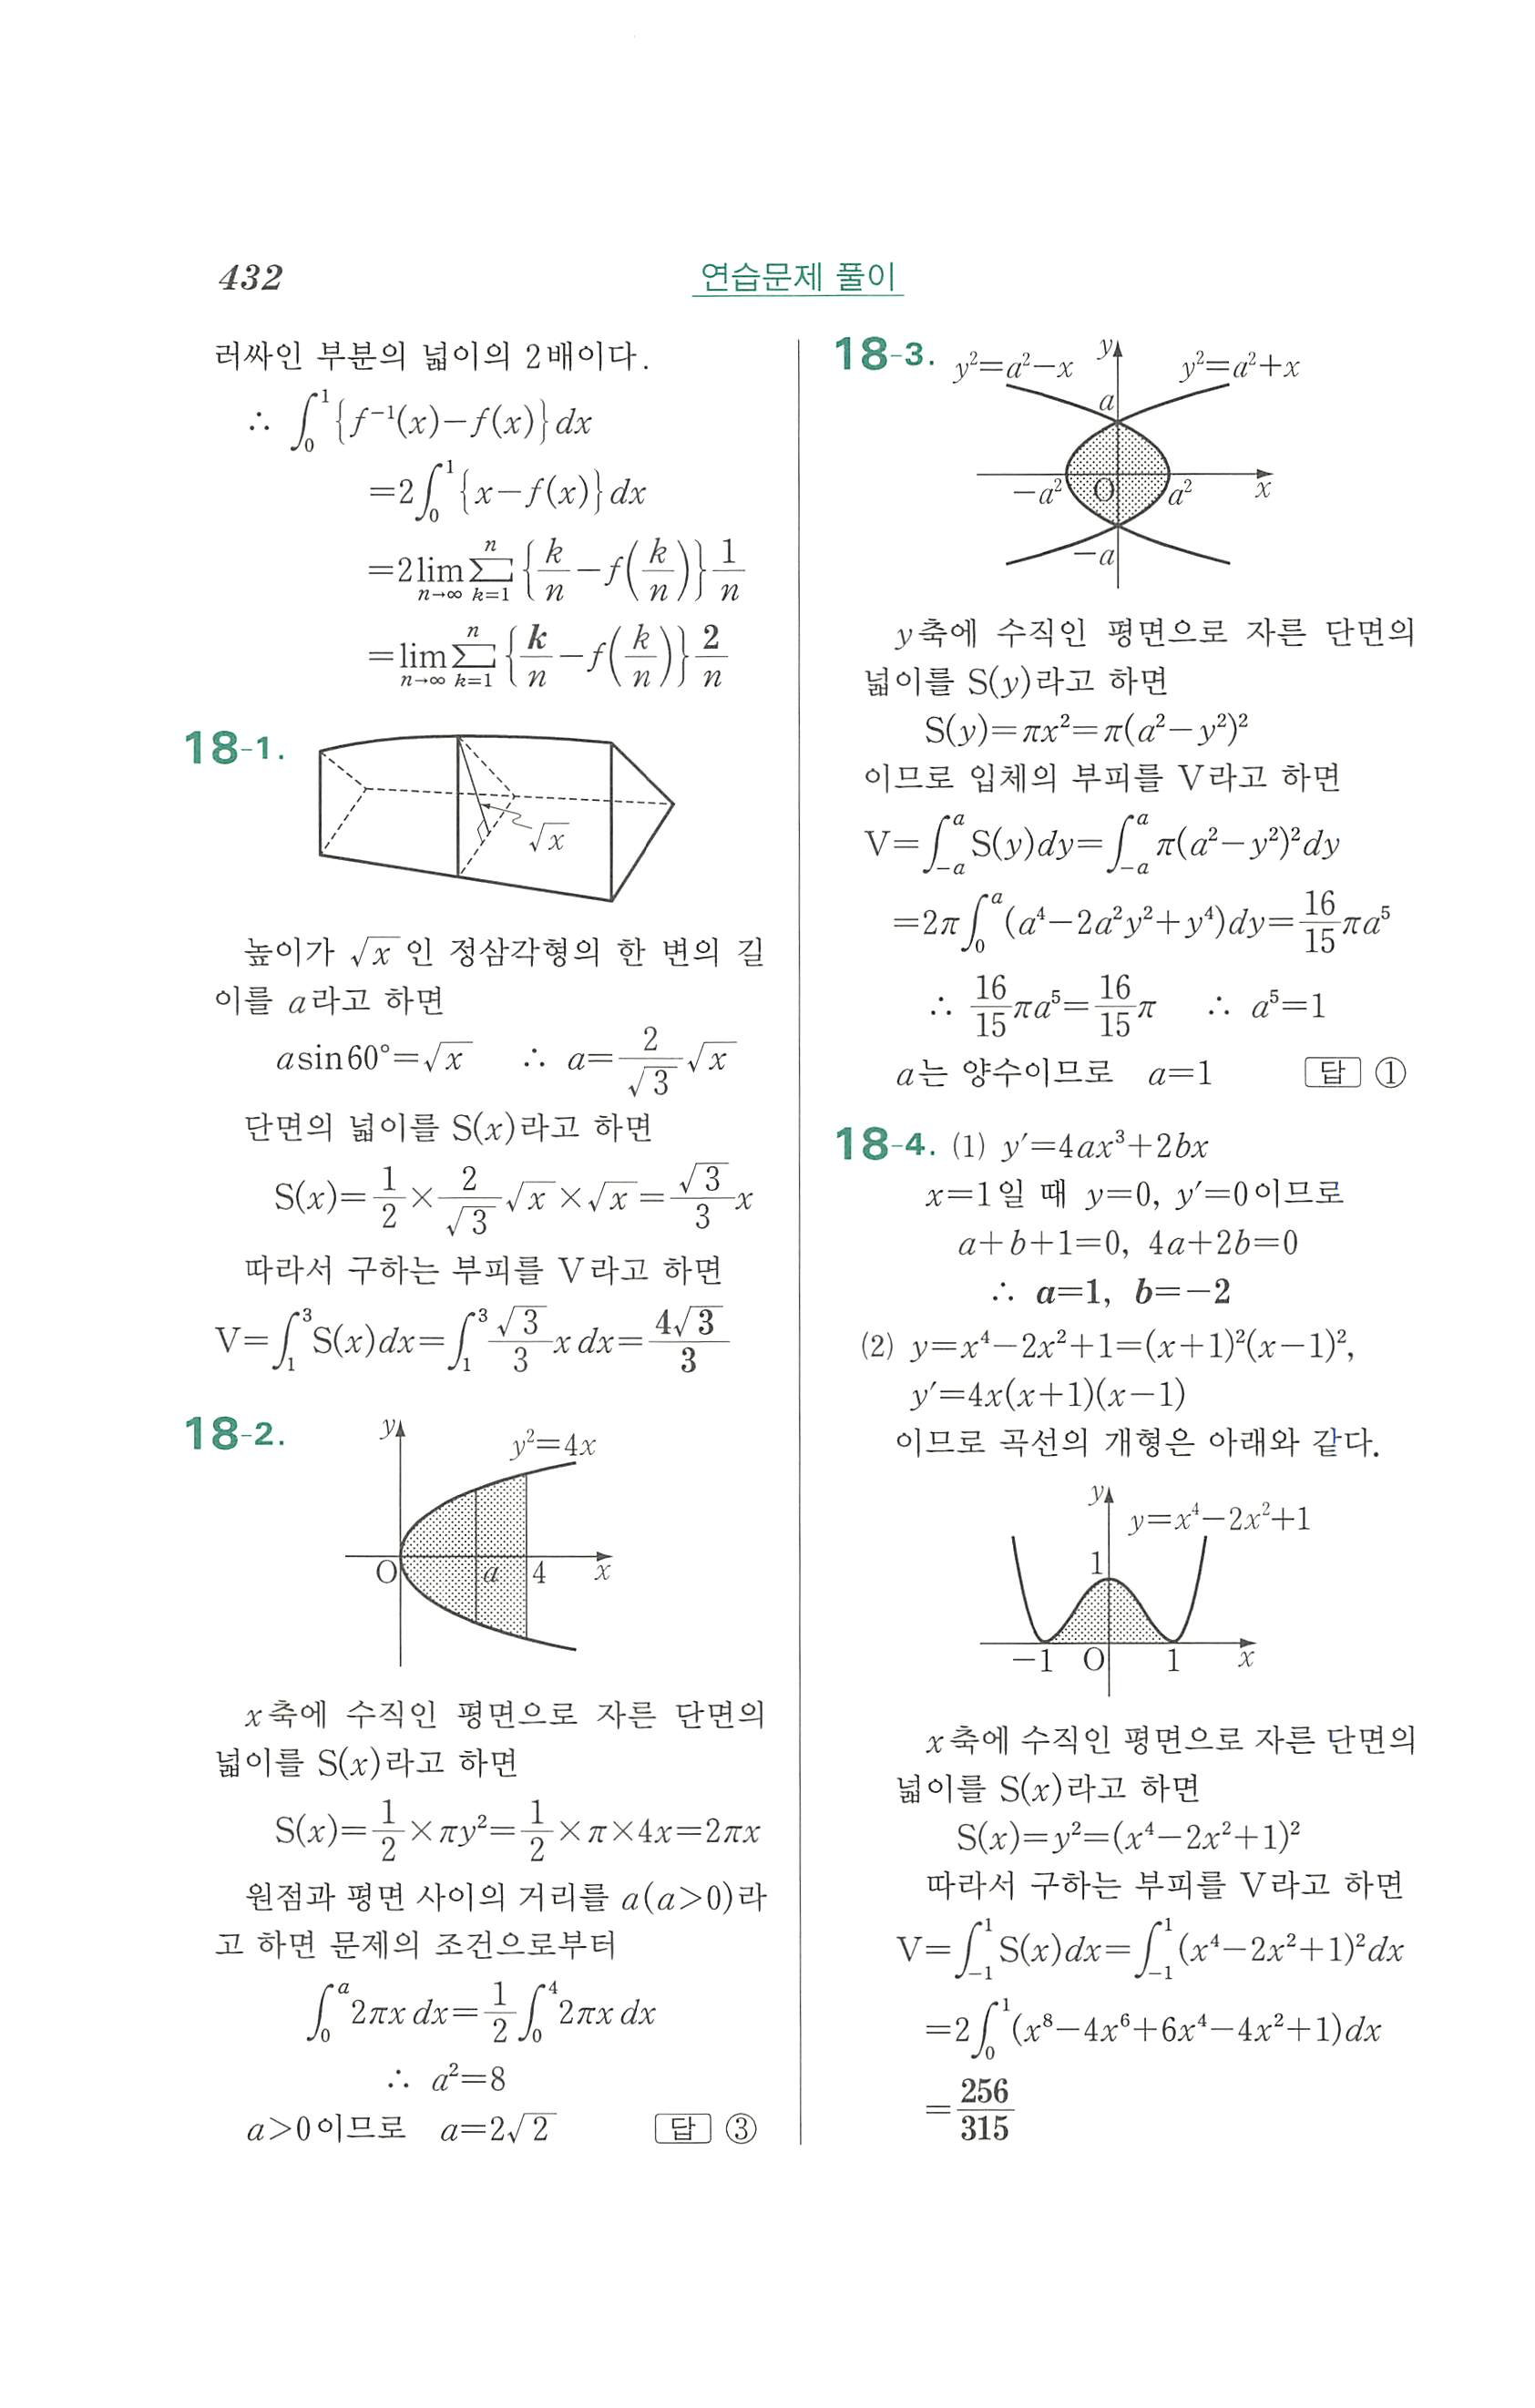 432
연습문제 풀이
러싸인 부분의 넓이의 2배이다.
∴ ∫₀¹{f⁻¹(x)−f(x)}dx
=2∫₀¹{x−f(x)}dx
=2 lim_{n→∞} ∑_{k=1}^{n} {k/n−f(k/n)} 1/n
=lim_{n→∞} ∑_{k=1}^{n} {k/n−f(k/n)} 2/n
18-1.
√x
높이가 √x 인 정삼각형의 한 변의 길
이를 a라고 하면
a sin 60°=√x ∴ a=2/√3 √x
단면의 넓이를 S(x)라고 하면
S(x)=1/2×2/√3 √x×√x=√3/3 x
따라서 구하는 부피를 V라고 하면
V=∫₁³S(x)dx=∫₁³ √3/3 x dx=4√3/3
18-2.
y
y²=4x
O a 4 x
x축에 수직인 평면으로 자른 단면의
넓이를 S(x)라고 하면
S(x)=1/2×πy²=1/2×π×4x=2πx
원점과 평면 사이의 거리를 a(a>0)라
고 하면 문제의 조건으로부터
∫₀ᵃ2πx dx=1/2∫₀⁴2πx dx
∴ a²=8
a>0이므로 a=2√2 답 ③
18-3.
y²=a²−x y y²=a²+x
a
−a² O a² x
−a
y축에 수직인 평면으로 자른 단면의
넓이를 S(y)라고 하면
S(y)=πx²=π(a²−y²)²
이므로 입체의 부피를 V라고 하면
V=∫₋ₐᵃS(y)dy=∫₋ₐᵃπ(a²−y²)²dy
=2π∫₀ᵃ(a⁴−2a²y²+y⁴)dy=16/15 πa⁵
∴ 16/15 πa⁵=16/15 π ∴ a⁵=1
a는 양수이므로 a=1 답 ①
18-4. (1) y′=4ax³+2bx
x=1일 때 y=0, y′=0이므로
a+b+1=0, 4a+2b=0
∴ a=1, b=−2
(2) y=x⁴−2x²+1=(x+1)²(x−1)²,
y′=4x(x+1)(x−1)
이므로 곡선의 개형은 아래와 같다.
y
y=x⁴−2x²+1
1
−1 O 1 x
x축에 수직인 평면으로 자른 단면의
넓이를 S(x)라고 하면
S(x)=y²=(x⁴−2x²+1)²
따라서 구하는 부피를 V라고 하면
V=∫₋₁¹S(x)dx=∫₋₁¹(x⁴−2x²+1)²dx
=2∫₀¹(x⁸−4x⁶+6x⁴−4x²+1)dx
=256/315